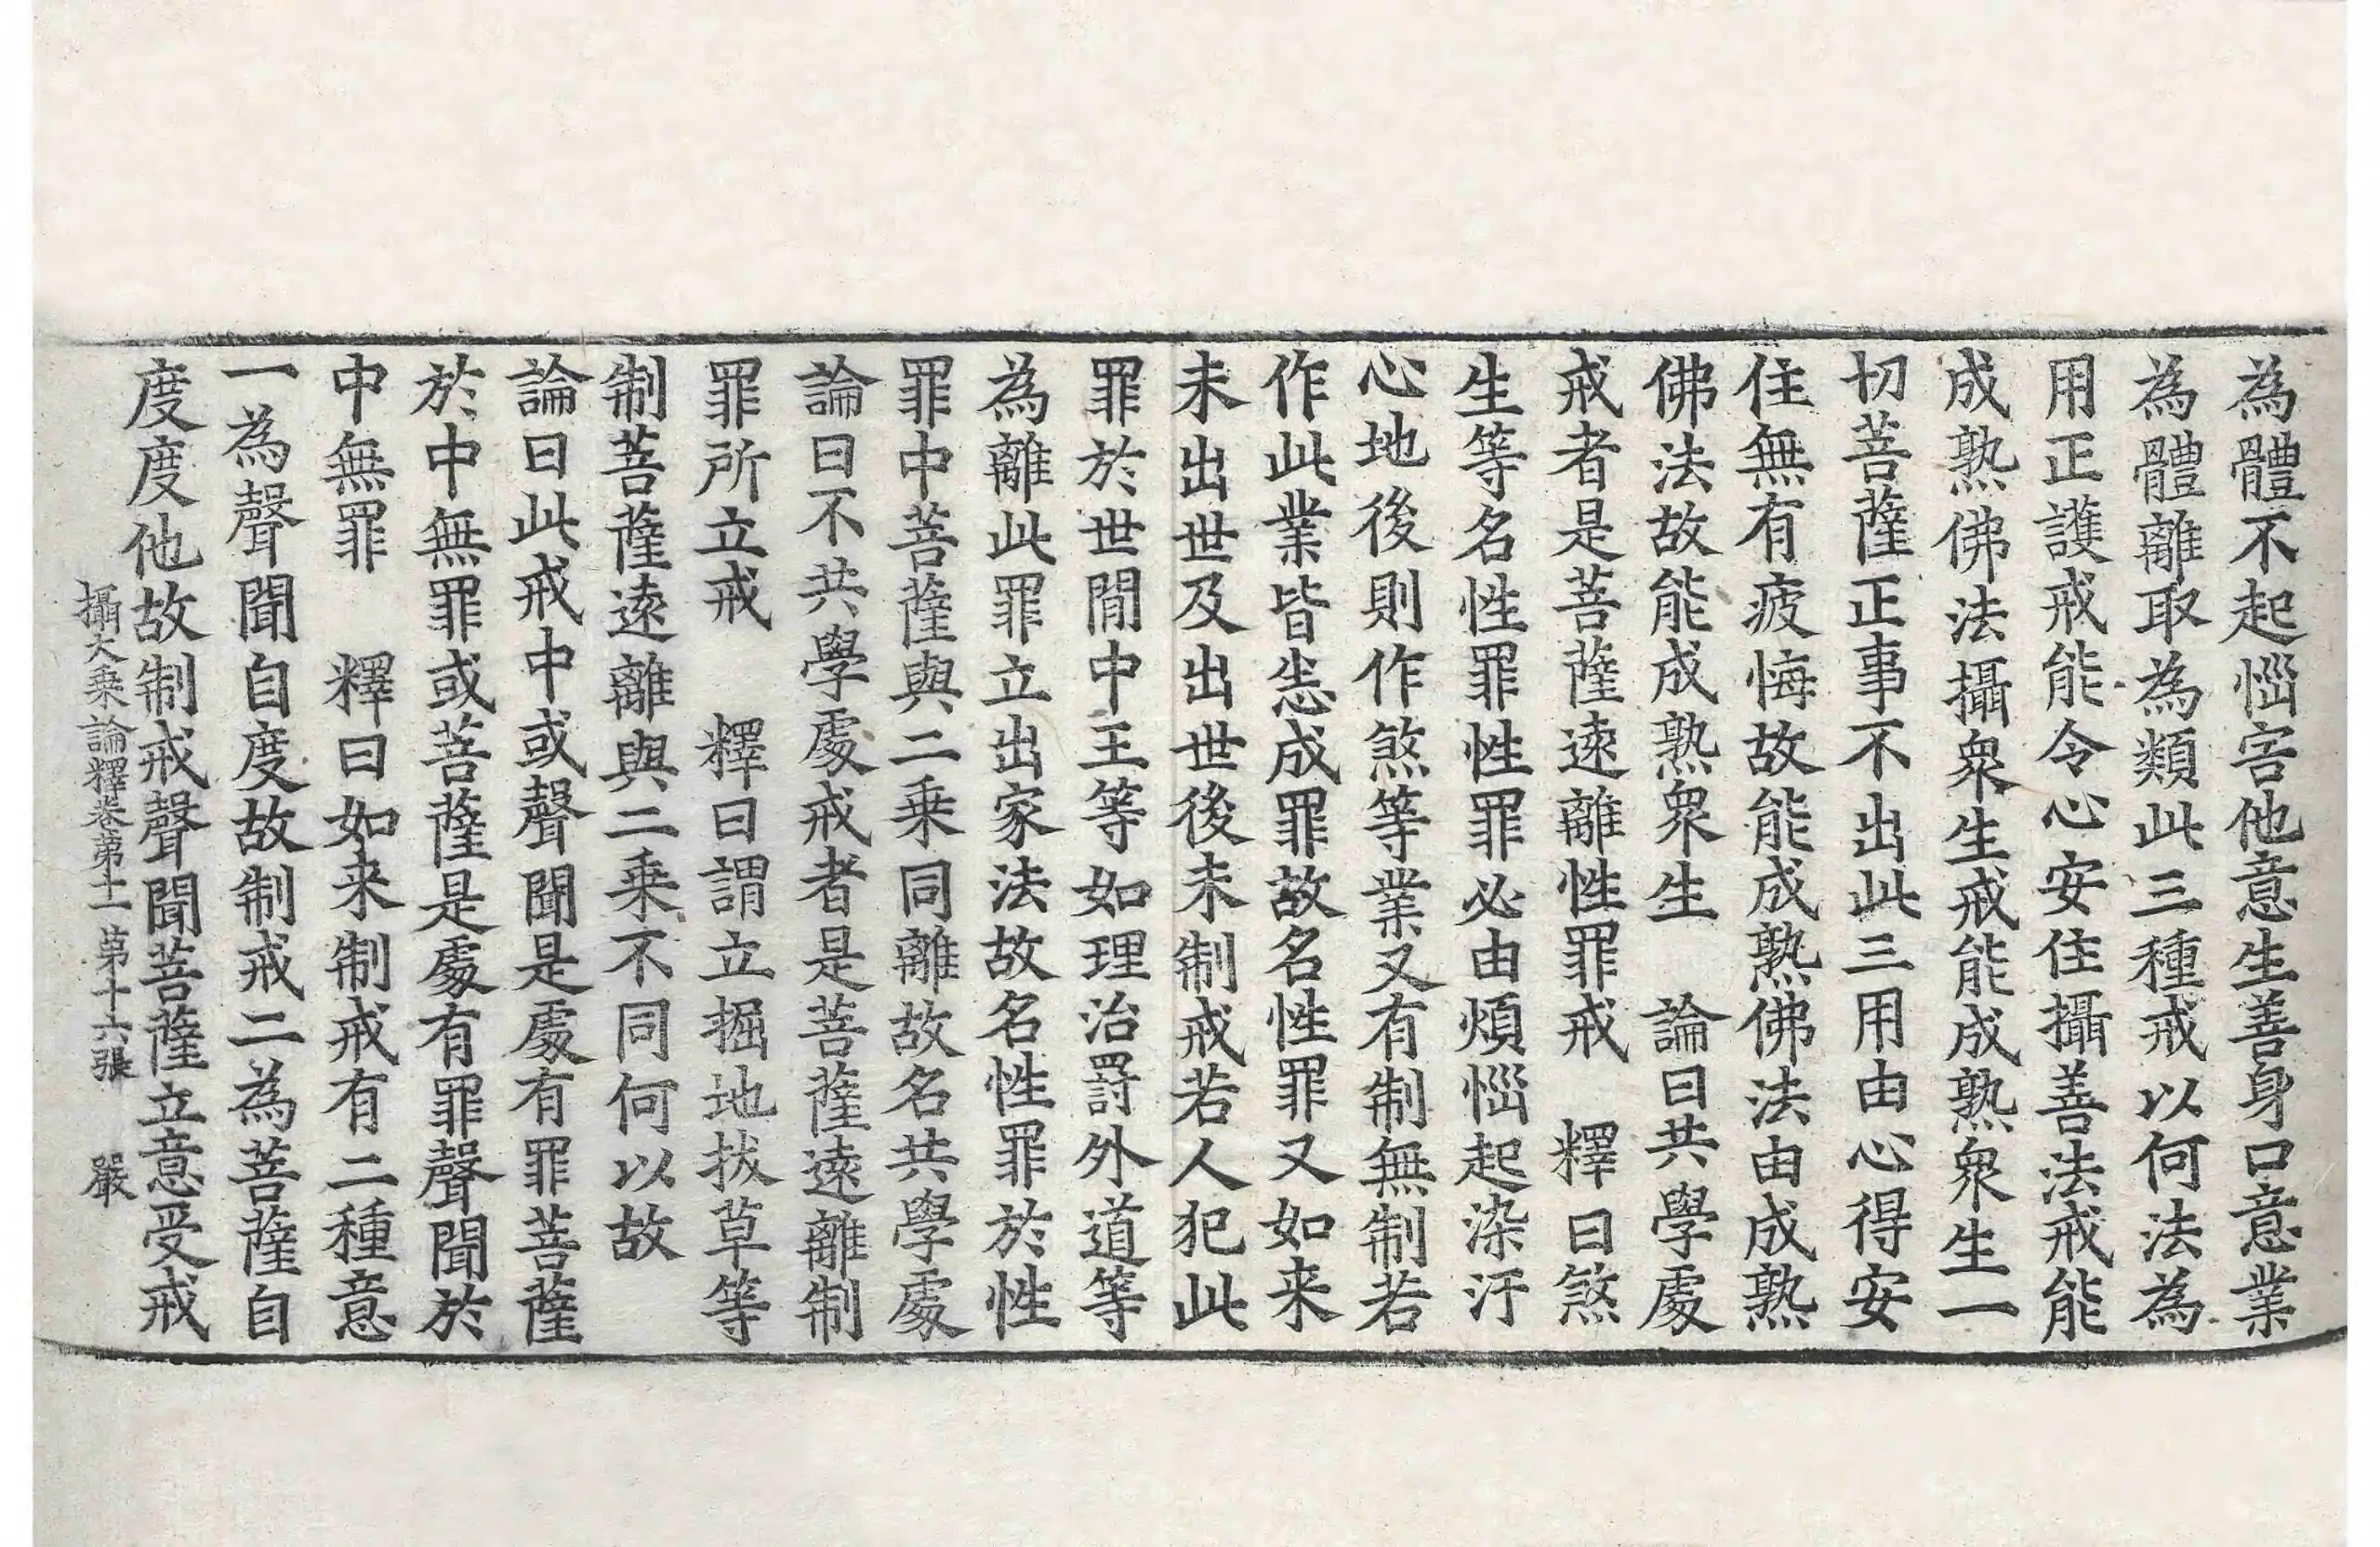 為體不起惱害他意生善身口意業
為體離取為類此三種戒以何法為
用正護戒能令心安住攝善法戒能
成熟佛法攝衆生戒能成熟衆生一
切菩薩正事不出此三用由心得安
住無有疲悔故能成熟佛法由成熟
佛法故能成熟衆生　論曰共學處
戒者是菩薩遠離性罪戒　釋曰煞
生等名性罪性罪必由煩惱起染汙
心地後則作煞等業又有制無制若
作此業皆恙成罪故名性罪又如来
未出世及出世後未制戒若人犯此
罪於世間中王等如理治罸外道等
為離此罪立出家法故名性罪於性
罪中菩薩與二乗同離故名共學處
論曰不共學處戒者是菩薩遠離制
罪所立戒　釋曰謂立掘地拔草等
制菩薩遠離與二乗不同何以故
論曰此戒中或聲聞是處有罪菩薩
於中無罪或菩薩是處有罪聲聞於
中無罪　釋曰如来制戒有二種意
一為聲聞自度故制戒二為菩薩自
度度他故制戒聲聞菩薩立意受戒
攝大乗論釋卷第十一　第十六張　嚴